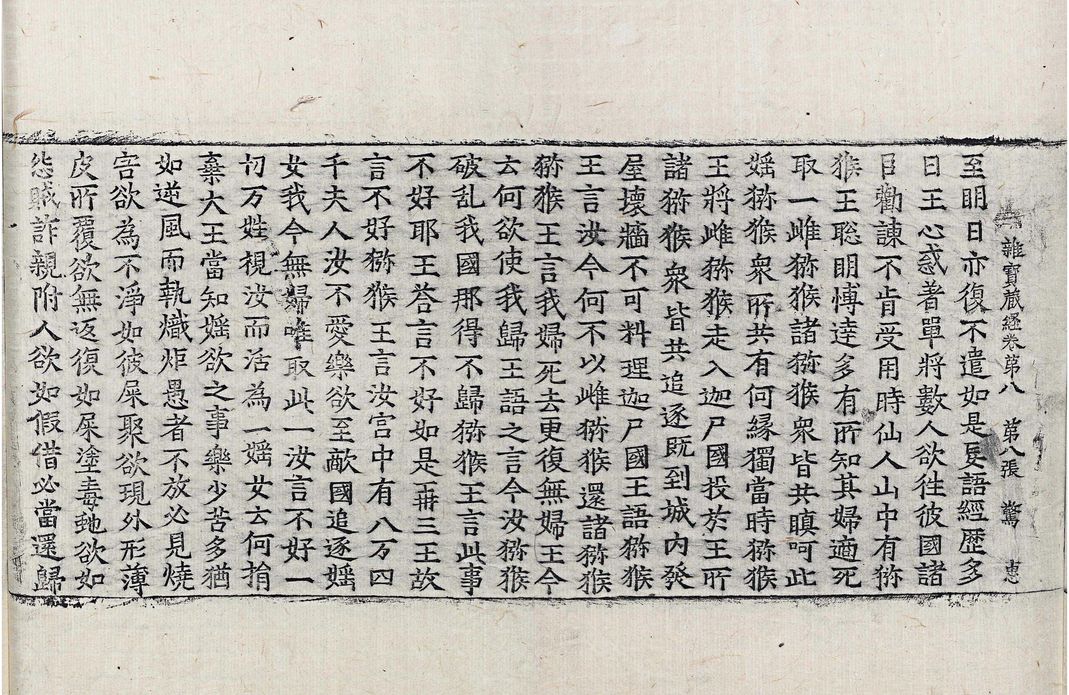 雜寶蔵経卷第八 第八張 驚 恵
至明日亦復不遣如是更語經歷多
日王心惑著單將數人欲徃彼國諸
臣勸諫不肯受用時仙人山中有猕
猴王聡明愽達多有所知其婦適死
取一雌猕猴諸猕猴衆皆共瞋呵此
婬猕猴衆所共有何縁獨當時猕猴
王將雌猕猴走入迦尸國投於王所
諸猕猴衆皆共追逐既到城内發
屋壞牆不可料理迦尸國王語猕猴
王言汝今何不以雌猕猴還諸猕猴
猕猴王言我婦死去更復無婦王今
云何欲使我歸王語之言今汝猕猴
破乱我國那得不歸猕猴王言此事
不好耶王荅言不好如是再三王故
言不好猕猴王言汝宫中有八万四
千夫人汝不愛樂欲至敵國追逐婬
女我今無婦唯取此一汝言不好一
切万姓視汝而活為一婬女云何捐
棄大王當知婬欲之事樂少苦多猶
如逆風而執熾炬愚者不放必見燒
害欲為不淨如彼屎聚欲現外形薄
皮所覆欲無返復如屎塗毒虵欲如
怨賊詐親附人欲如假借必當還歸